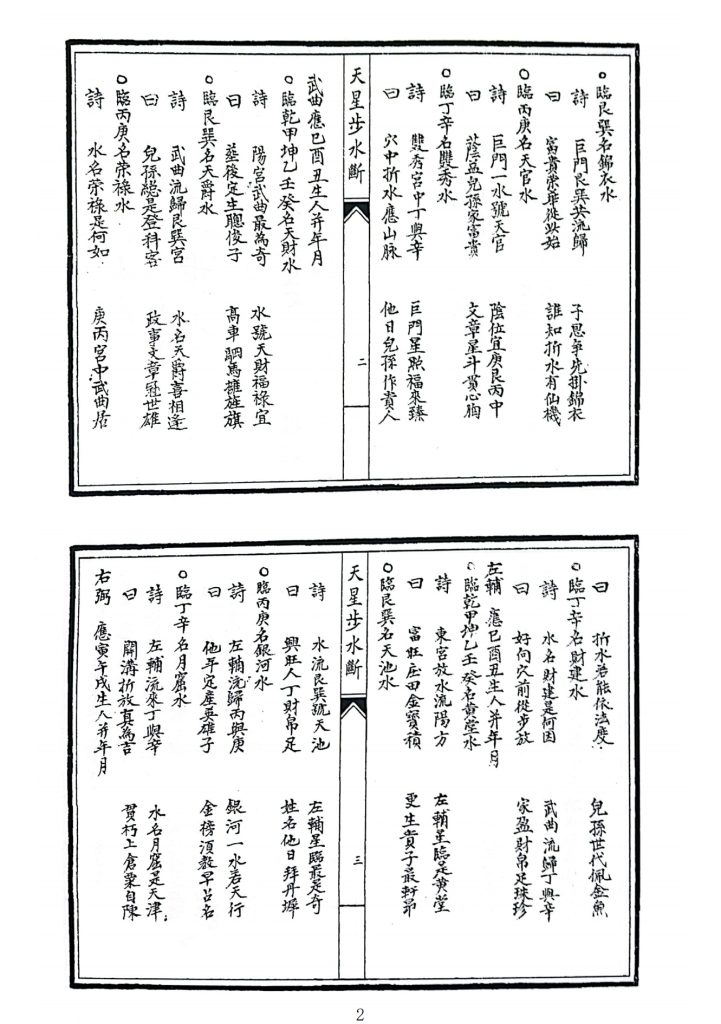 ○臨艮巽名錦衣水
詩 巨門艮巽英流歸 子息爭先掛錦衣
曰 富貴榮華從此始 誰知折水有仙機
○臨丙庚名天官水
詩 巨門一水號天官 陰位宜庚艮丙中
曰 蔭益兒孫家富貴 文章星斗貫心胸
○臨丁辛名雙秀水
詩 雙秀宮中丁與辛 巨門星照福來臻
曰 穴中折水應山脉 他日兒孫作貴人
天星步水斷
二
武曲應巳酉丑生人并年月
○臨乾甲坤乙壬癸名天財水
詩 陽宮武曲最為奇 水號天財福祿宜
曰 塟後定生聰俊子 高車駟馬擁旌旗
○臨艮巽名天爵水
詩 武曲流歸艮巽宮 水名天爵喜相逢
曰 兒孫總是登科客 政事文章冠世雄
○臨丙庚名榮祿水
詩 水名荣祿是何如 庚丙宮中武曲居
曰 折水若能依法度 兒孫世代佩金魚
○臨丁辛名財建水
詩 水名財建是何因 武曲流歸丁與辛
曰 好向穴前從步放 家盈財帛足珠珍
左輔 應巳酉丑生人并年月
○臨乾甲坤乙壬癸名黄堂水
詩 東宮放水流陽方 左輔星臨是黄堂
曰 富旺庄田金寶積 更生貴子最軒昂
○臨艮巽名天池水
天星步水斷
三
詩 水流艮巽號天池 左輔星臨最是奇
曰 興旺人丁財帛足 姓名他日拜丹墀
○臨丙庚名銀河水
詩 左輔流歸丙與庚 銀河一水若天行
曰 他年定産英雄子 金榜須教早占名
○臨丁辛名月窟水
詩 左輔流來丁與辛 水名月窟是天津
曰 開溝折放真為吉 貫朽上倉粟自陳
右弼 應寅午戌生人并年月
2